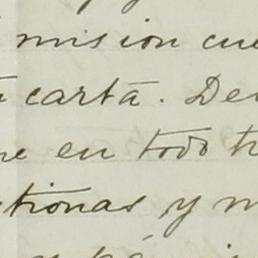 mision cue
carta. De
ne en todo t
tionas y m